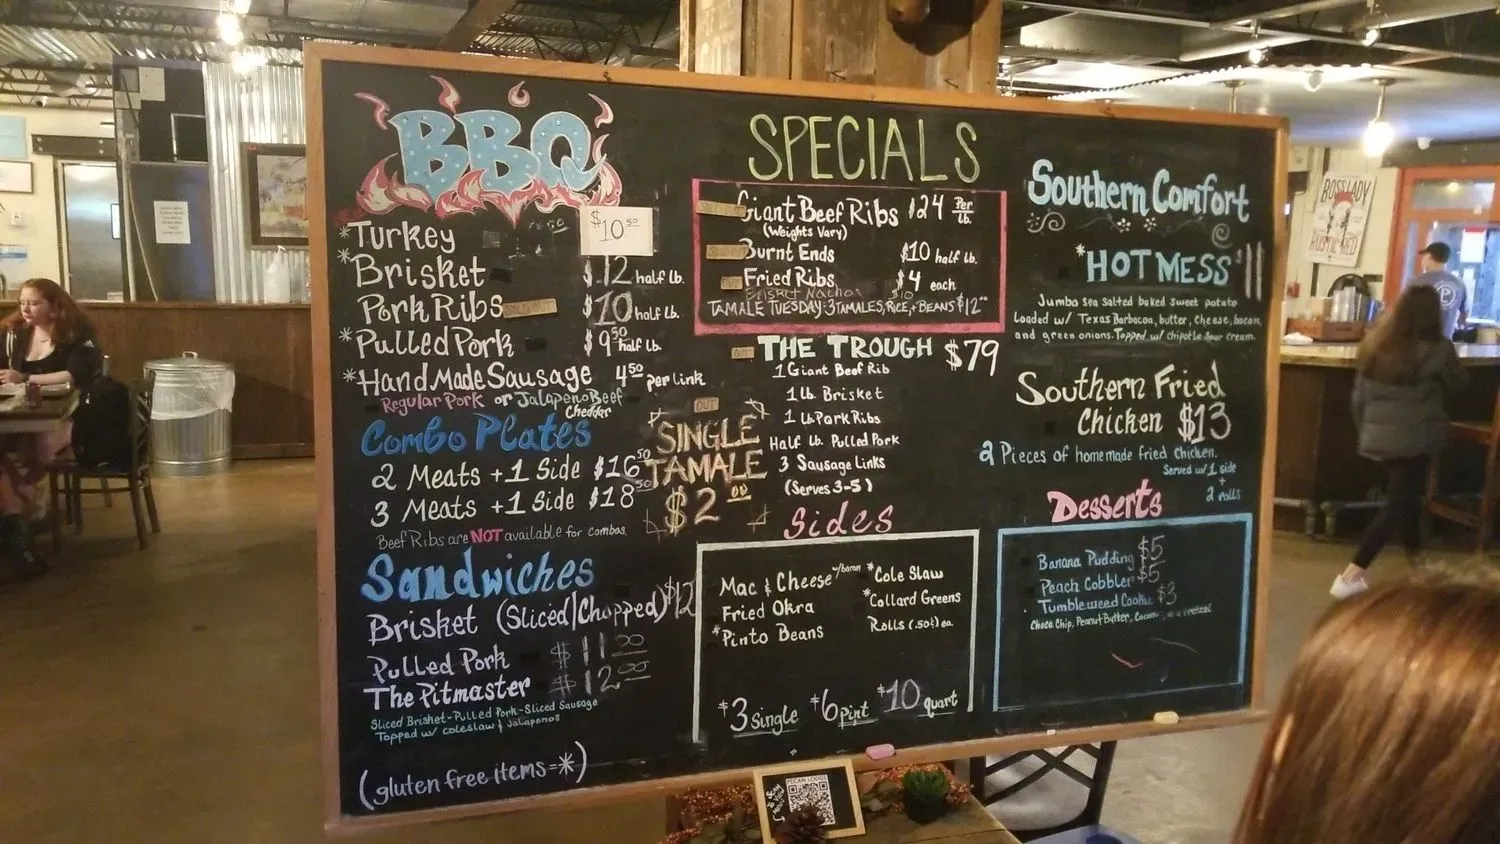 BBQ
*Turkey $10.50
*Brisket $12 half lb.
Pork Ribs SOLD OUT $10 half lb.
*Pulled Pork $9.50 half lb.
*HandMade Sausage 4.50 per link
Regular Pork or Jalapeno Beef
Cheddar
Combo Plates
2 Meats + 1 Side $16.50
3 Meats + 1 Side $18.50
Beef Ribs are NOT available for combos
Sandwiches
Brisket (Sliced/Chopped) $12
Pulled Pork $11.00
The Pitmaster $12.00
Sliced Brisket-Pulled Pork-Sliced Sausage
Topped w/ coleslaw & Jalapenos
(gluten free items=*)
SPECIALS
Giant Beef Ribs $24 Per lb.
(Weights Vary)
Burnt Ends $10 half lb.
OUT Fried Ribs $4 each
Brisket Nachos $10
TAMALE TUESDAY: 3 TAMALES, RICE, + BEANS $12.00
OUT THE TROUGH $79
1 Giant Beef Rib
1 lb Brisket
1 lb Pork Ribs
Half lb. Pulled Pork
3 Sausage Links
(Serves 3-5)
OUT
SINGLE
TAMALE
$2.00
Sides
Mac & Cheese w/bacon
Fried Okra
*Pinto Beans
*Cole Slaw
*Collard Greens
Rolls (.50¢) ea
$3 single $6 pint $10 quart
Southern Comfort
*HOT MESS $11
Jumbo sea salted baked sweet potato
Loaded w/ Texas Barbacoa, butter, cheese, bacon,
and green onions. Topped w/ Chipotle sour cream.
Southern Fried
Chicken $13
2 Pieces of homemade fried chicken.
Served w/ 1 side
+
2 rolls
Desserts
Banana Pudding $5
Peach Cobbler $5
Tumbleweed Cookie $3
Choco Chip, Peanut Butter, Coconut, and Pretzel
PECAN LODGE
BOSS LADY
RUSTIC RED